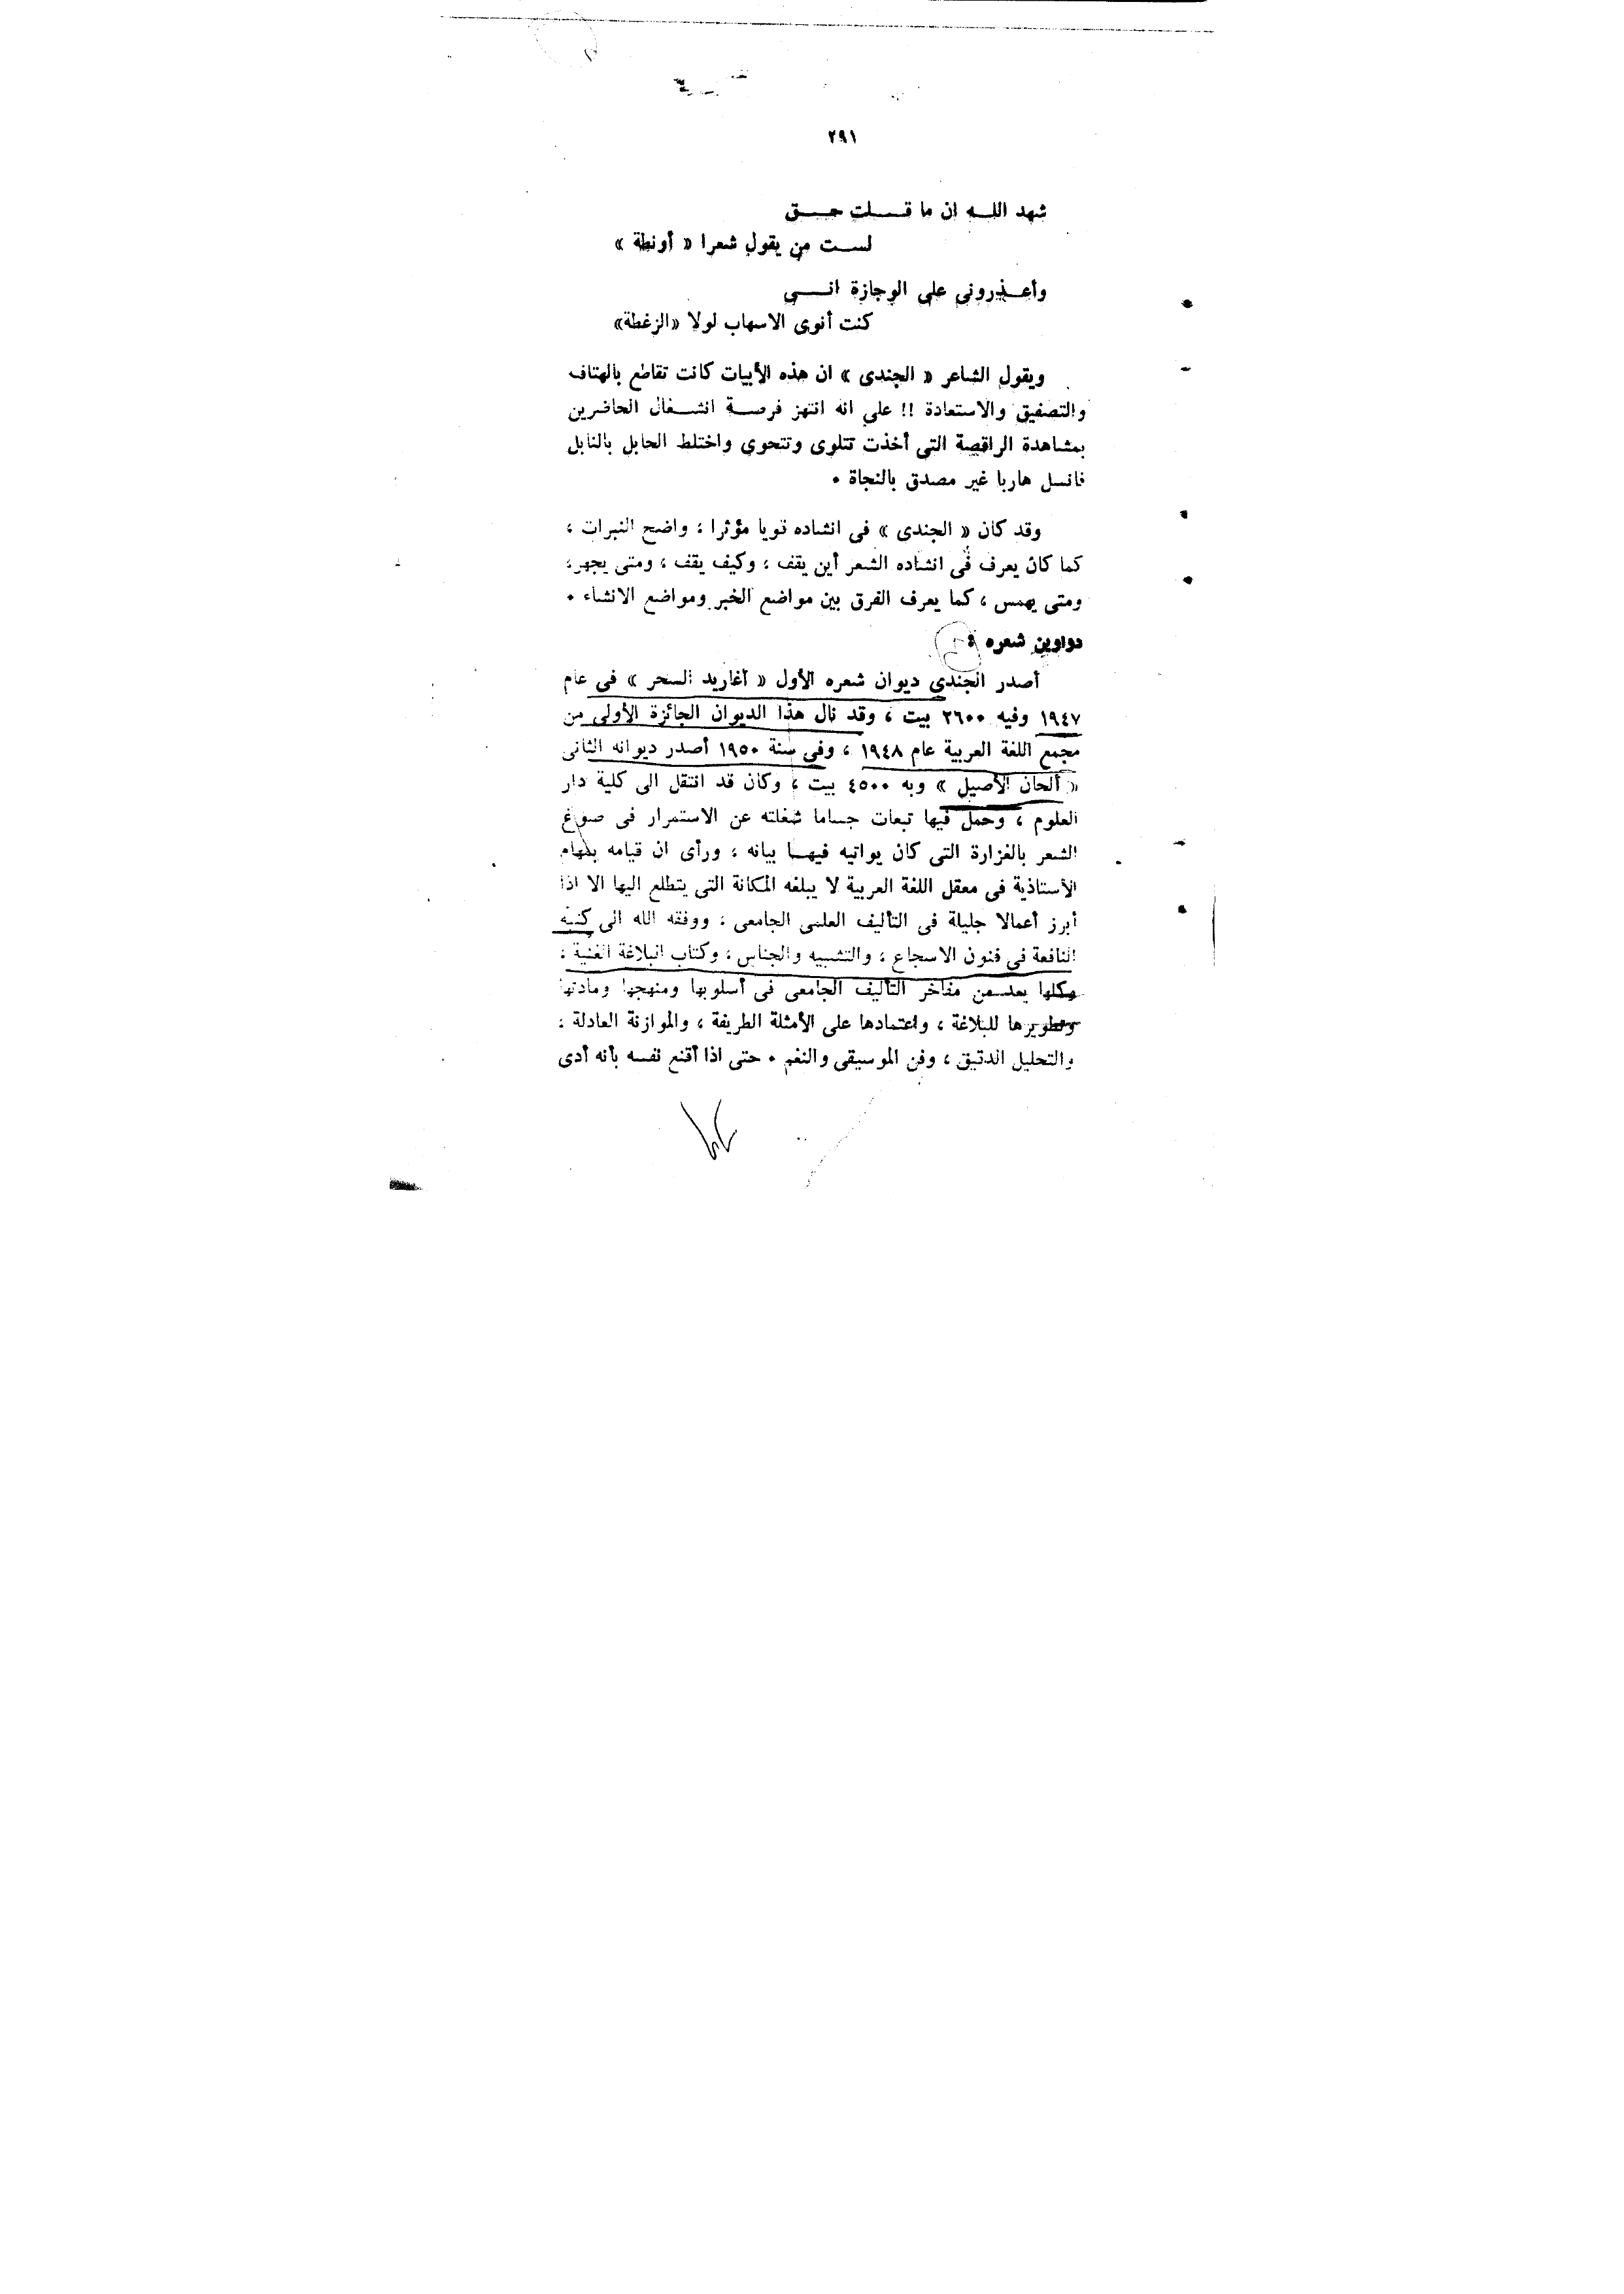 ٢٩١
شهد اللـه ان ما قـلت حـق
لسـت من يقول شعرا « أونطة »
وأعـذرونى على الوجازة انـى
كنت أنوى الاسهاب لولا «الزغطة»
ويقول الشاعر « الجندى » ان هذه الأبيات كانت تقاطع بالهتاف
والتصفيق والاستعادة !! على انه انتهز فرصـة انشـغال الحاضرين
بمشاهدة الراقصة التى أخذت تتلوى وتتحوى واختلط الحابل بالنابل
فانسل هاربا غير مصدق بالنجاة .
وقد كان « الجندى » فى انشاده قويا مؤثرا ، واضح النبرات ،
كما كان يعرف فى انشاده الشعر أين يقف ، وكيف يقف ، ومتى يجهر ،
ومتى يهمس ، كما يعرف الفرق بين مواضع الخبر ومواضع الانشاء .
دواوين شعره :
أصدر الجندى ديوان شعره الأول « أغاريد السحر » فى عام
١٩٤٧ وفيه ٢٦٠٠ بيت ، وقد نال هذا الديوان الجائزة الأولى من
مجمع اللغة العربية عام ١٩٤٨ ، وفى سنة ١٩٥٠ أصدر ديوانه الثانى
« ألحان الأصيل » وبه ٤٥٠٠ بيت ، وكان قد انتقل الى كلية دار
العلوم ، وحمل فيها تبعات جساما شغلته عن الاستمرار فى صوغ
الشعر بالغزارة التى كان يواتيه فيهـا بيانه ، ورأى ان قيامه بمهام
الأستاذية فى معقل اللغة العربية لا يبلغه المكانة التى يتطلع اليها الا اذا
أبرز أعمالا جليلة فى التأليف العلمى الجامعى ، ووفقه الله الى كتبه
النافعة فى فنون الاسجاع ، والتشبيه والجناس ، وكتاب البلاغة الغنية ،
وكلها يعد من مفاخر التأليف الجامعى فى أسلوبها ومنهجها ومادتها
وتطويرها للبلاغة ، واعتمادها على الأمثلة الطريفة ، والموازنة العادلة ،
والتحليل الدقيق ، وفن الموسيقى والنغم . حتى اذا أقنع نفسه بأنه أدى